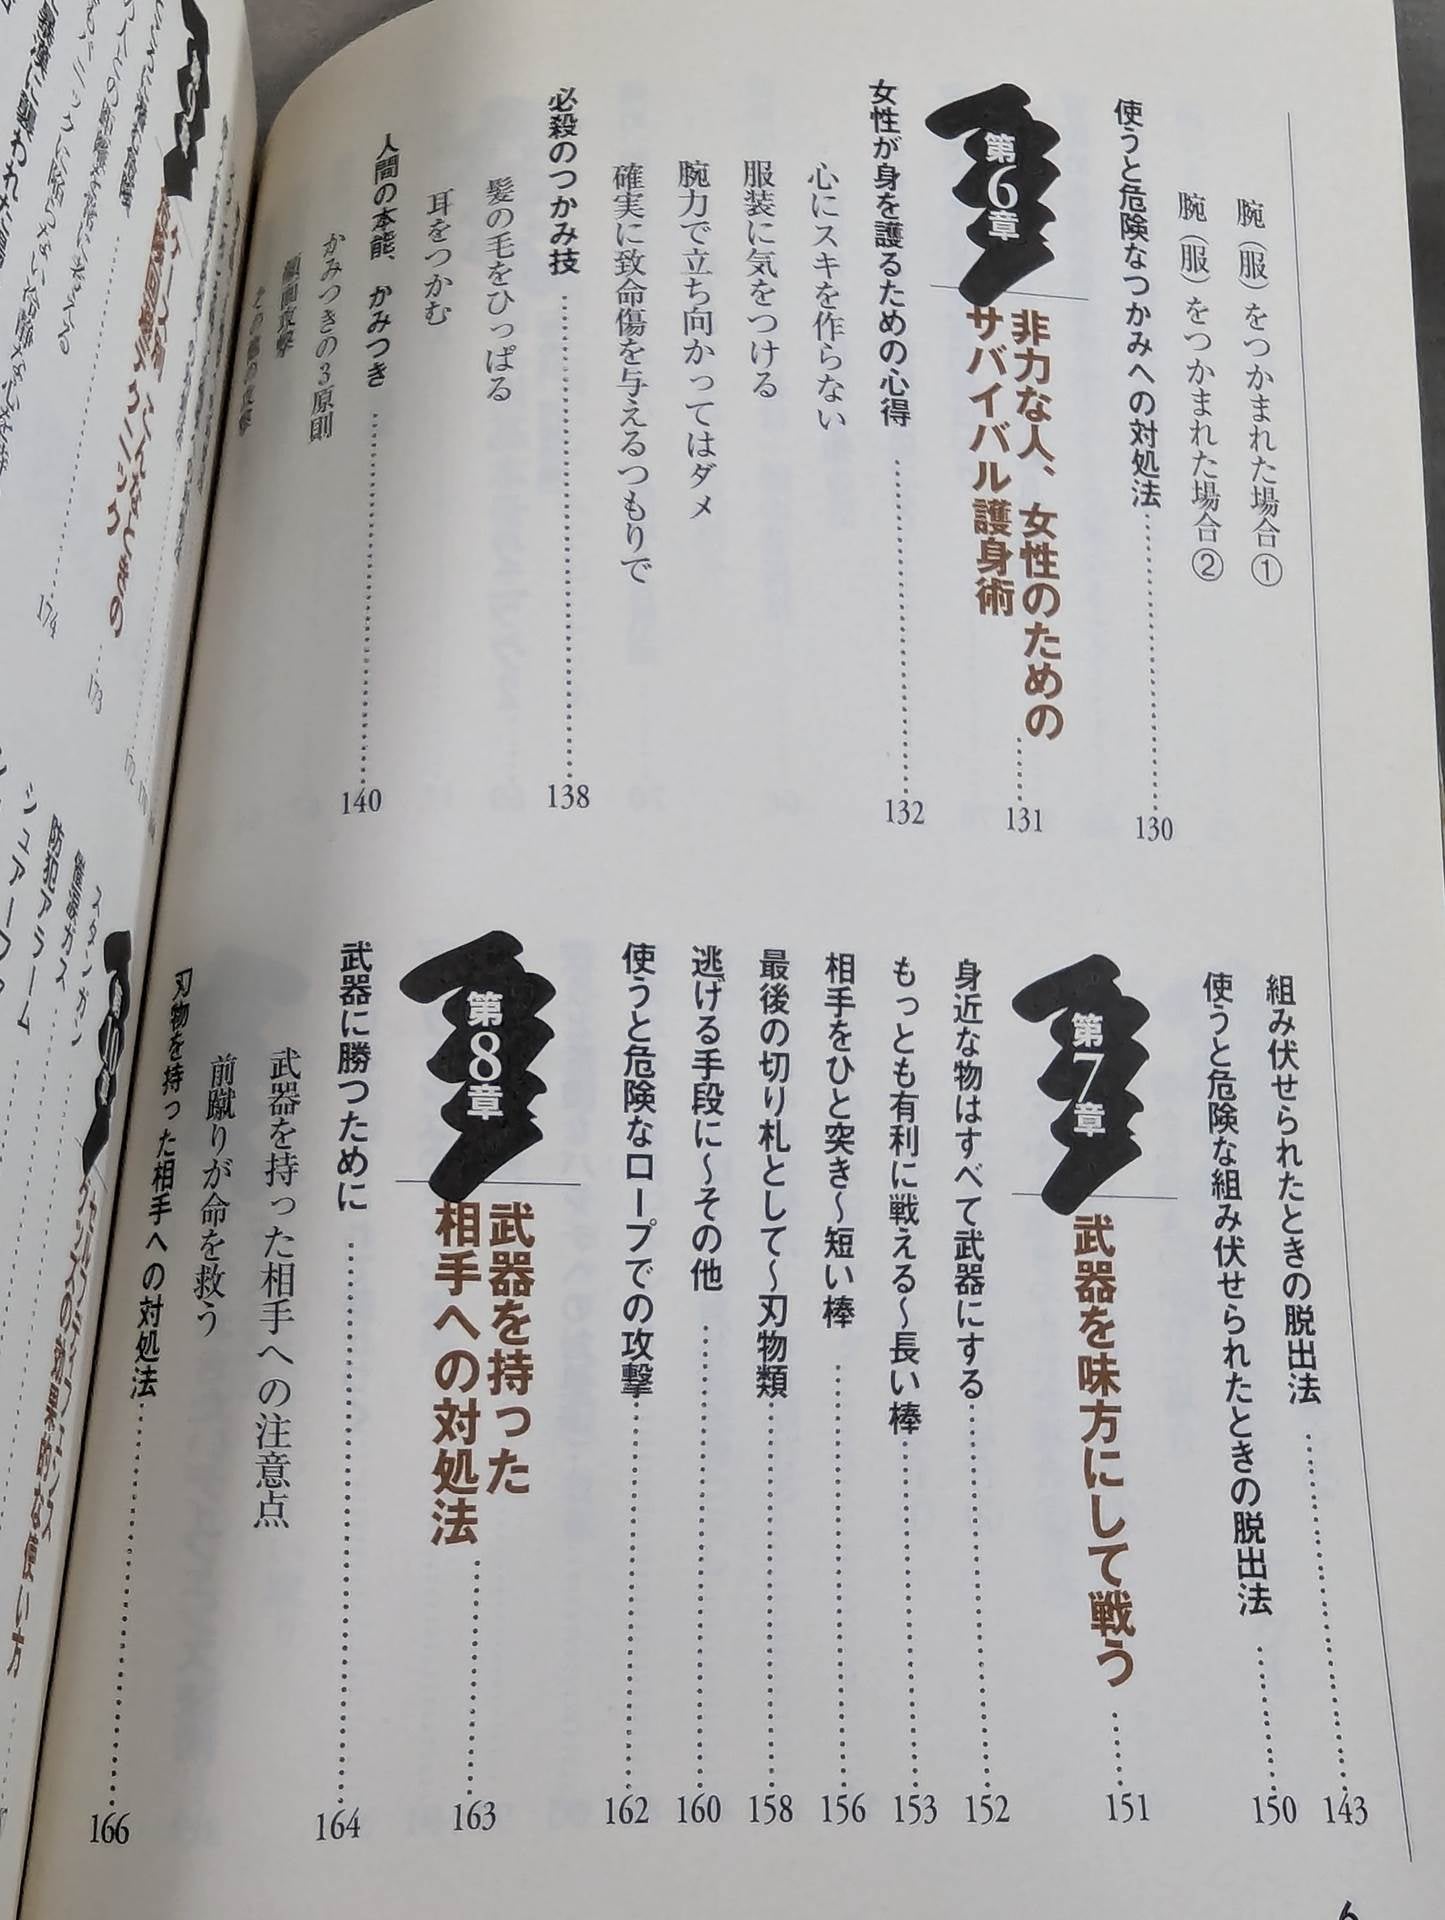 腕（服）をつかまれた場合①
腕（服）をつかまれた場合②
使うと危険なつかみへの対処法 130
第6章
非力な人、女性のための
サバイバル護身術 131
女性が身を護るための心得 132
心にスキを作らない
服装に気をつける
腕力で立ち向かってはダメ
確実に致命傷を与えるつもりで
必殺のつかみ技 138
髪の毛をひっぱる
耳をつかむ
人間の本能、かみつき 140
かみつきの3原則
顔面攻撃
その他の攻撃
組み伏せられたときの脱出法 143
使うと危険な組み伏せられたときの脱出法 150
第7章
武器を味方にして戦う 151
身近な物はすべて武器にする 152
もっとも有利に戦える～長い棒 153
相手をひと突き～短い棒 156
最後の切り札として～刃物類 158
逃げる手段に～その他 160
使うと危険なロープでの攻撃 162
第8章
武器を持った
相手への対処法 163
武器に勝つために 164
武器を持った相手への注意点
前蹴りが命を救う
刃物を持った相手への対処法 166
173
174
第10章
セルフディフェンス
グッズの効果的な使い方
スタンガン
催涙ガス
防犯アラーム